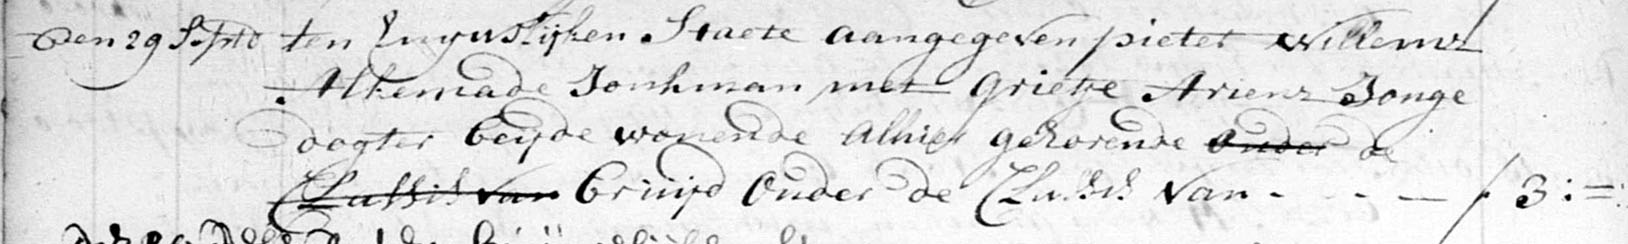 Den 29 Septb ten Huwelijken Staete aangegeven pieter Willemz
Alkemade Jonkman met Grietje Ariens Jonge
dogter beijde wonende alhier gehorende onder de
Classis van bruijd Onder de Classis van - - - — f 3:=: